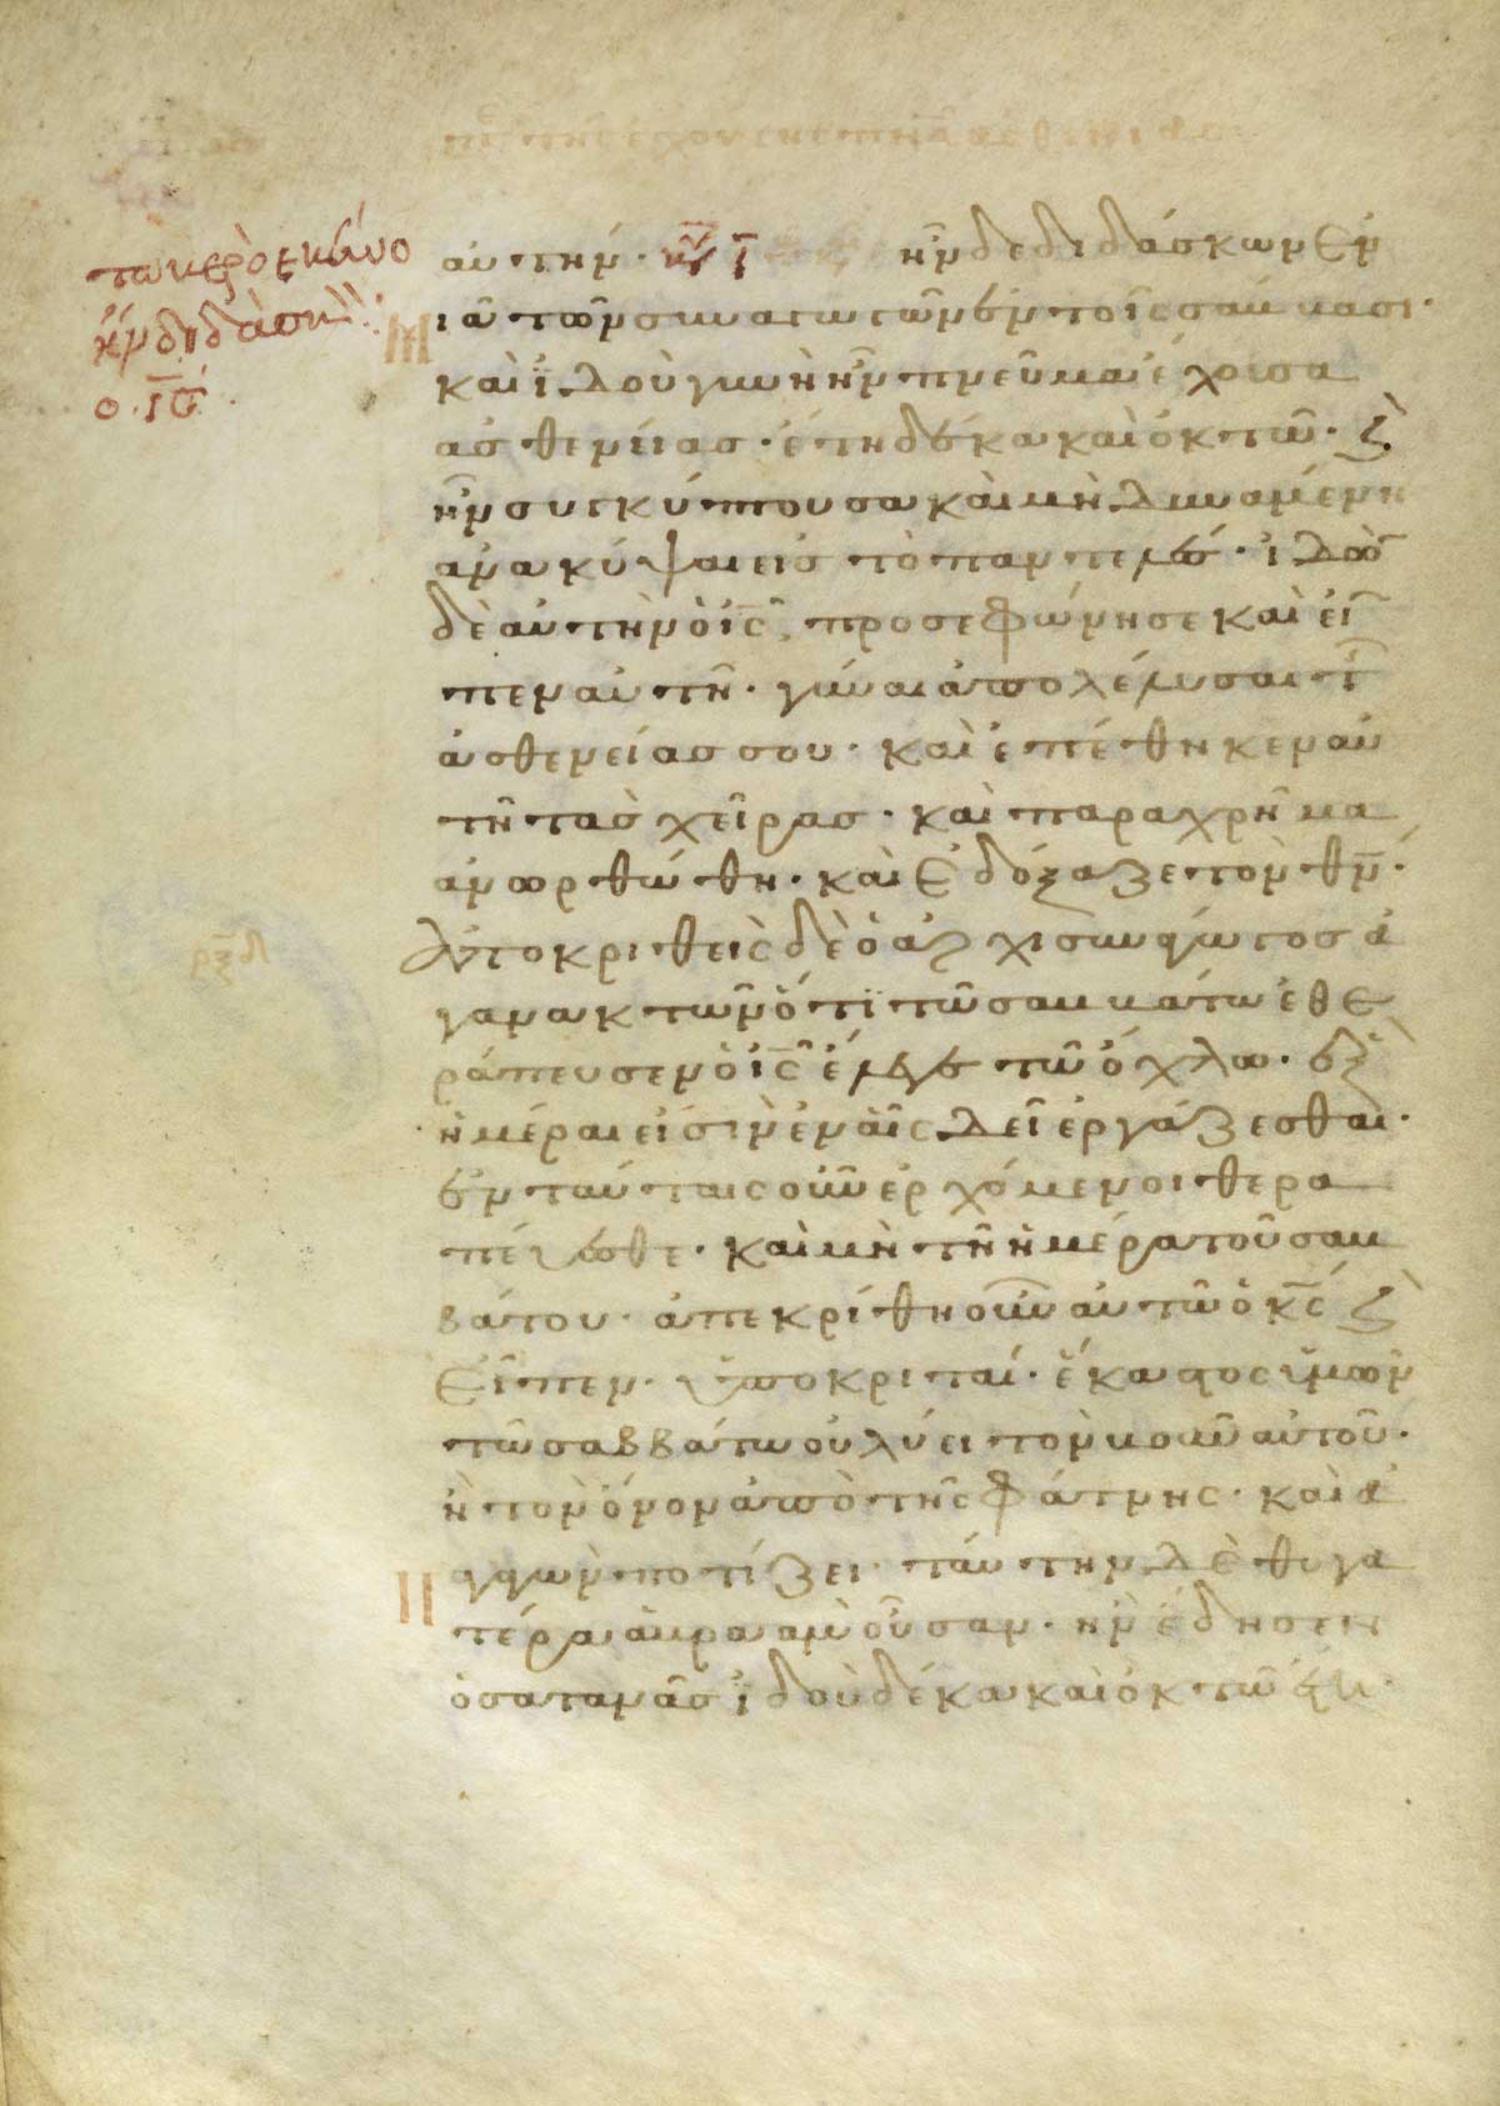 τω κερω εκεινο
ην διδασκ
ο ις
αὐτήν. ἦν δὲ διδάσκων ἐν
μιᾶ τῶν συναγωγῶν ἐν τοῖς σάββασι·
καὶ ἰδοὺ γυνὴ ἦν πνεῦμα ἔχουσα
ἀσθενείας· ἔτη δέκα καὶ ὀκτώ· ϗ
ἦν συγκύπτουσα καὶ μὴ δυναμένη
ἀνακύψαι εἰς τὸ παντελές· ἰδὼν
δὲ αὐτὴν ὁ ι̅ς̅, προσεφώνησε καὶ εἶ
πεν αὐτῆ· γύναι ἀπολέλυσαι τ
ἀσθενείας σου· καὶ ἐπέθηκεν αὐ
τῆ τὰς χεῖρας· καὶ παραχρῆμα
ἀνωρθώθη· καὶ ἐδόξαζε τὸν θ̅ν̅·
Ἀποκριθεὶς δὲ ὁ ἀρχισυνάγωγος ἀ
γανακτῶν ὅτι τῶ σαββάτω ἐθε
ράπευσεν ὁ ι̅ς̅ ἔλεγε τῶ ὄχλω· ἓξ
ἡμέραι εἰσὶν ἐν αἷς δεῖ ἐργάζεσθαι·
ἐν ταύταις οὖν ἐρχόμενοι θερα
πεύεσθε· καὶ μὴ τῆ ἡμέρα τοῦ σαβ
βάτου· ἀπεκρίθη οὖν αὐτῶ ὁ κ̅ς̅ ϗ
εἶπεν· ὑποκριταί· ἕκαστος ὑμῶν
τῶ σαββάτω οὐ λύει τὸν βοῦν αὐτοῦ·
ἢ τὸν ὄνον ἀπὸ τῆς φάτνης· καὶ ἀ
παγαγὼν ποτίζει· ταύτην δὲ θυγα
τέρα ἀβραὰμ οὖσαν· ἣν ἔδησεν
ὁ σατανᾶς ἰδοὺ δέκα καὶ ὀκτὼ ἔτη·